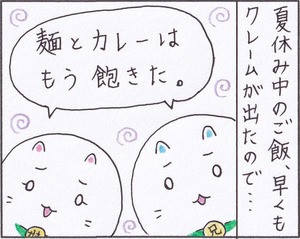 夏休み中のご飯、早くも
クレームが出たので…
麺とカレーは
もう飽きた。
兄